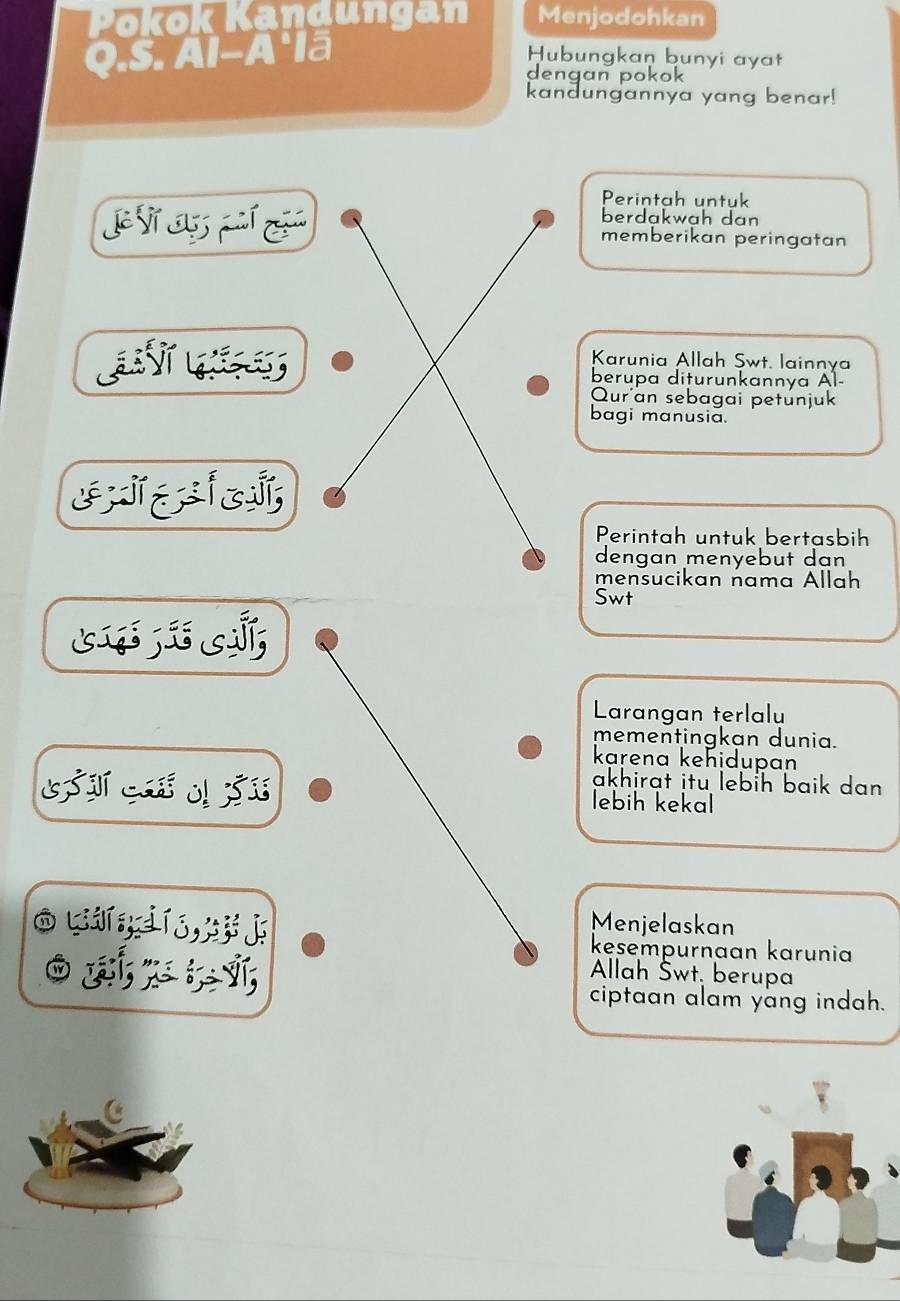 Pokok Kandungan
Q.S. Al-A'lā
Menjodohkan
Hubungkan bunyi ayat
dengan pokok
kandungannya yang benar!
سَبِّحِ ٱسْمَ رَبِّكَ ٱلْأَعْلَى
Perintah untuk
berdakwah dan
memberikan peringatan
وَيَتَجَنَّبُهَا ٱلْأَشْقَى
Karunia Allah Swt. lainnya
berupa diturunkannya Al-
Qur'an sebagai petunjuk
bagi manusia.
وَٱلَّذِىٓ أَخْرَجَ ٱلْمَرْعَىٰ
Perintah untuk bertasbih
dengan menyebut dan
mensucikan nama Allah
Swt
وَٱلَّذِى قَدَّرَ فَهَدَىٰ
Larangan terlalu
mementingkan dunia.
karena kehidupan
akhirat itu lebih baik dan
lebih kekal
فَذَكِّرْ إِن نَّفَعَتِ ٱلذِّكْرَىٰ
بَلْ تُؤْثِرُونَ ٱلْحَيَوٰةَ ٱلدُّنْيَا ١٦
وَٱلْءَاخِرَةُ خَيْرٌ وَأَبْقَىٰٓ ١٧
Menjelaskan
kesempurnaan karunia
Allah Swt. berupa
ciptaan alam yang indah.